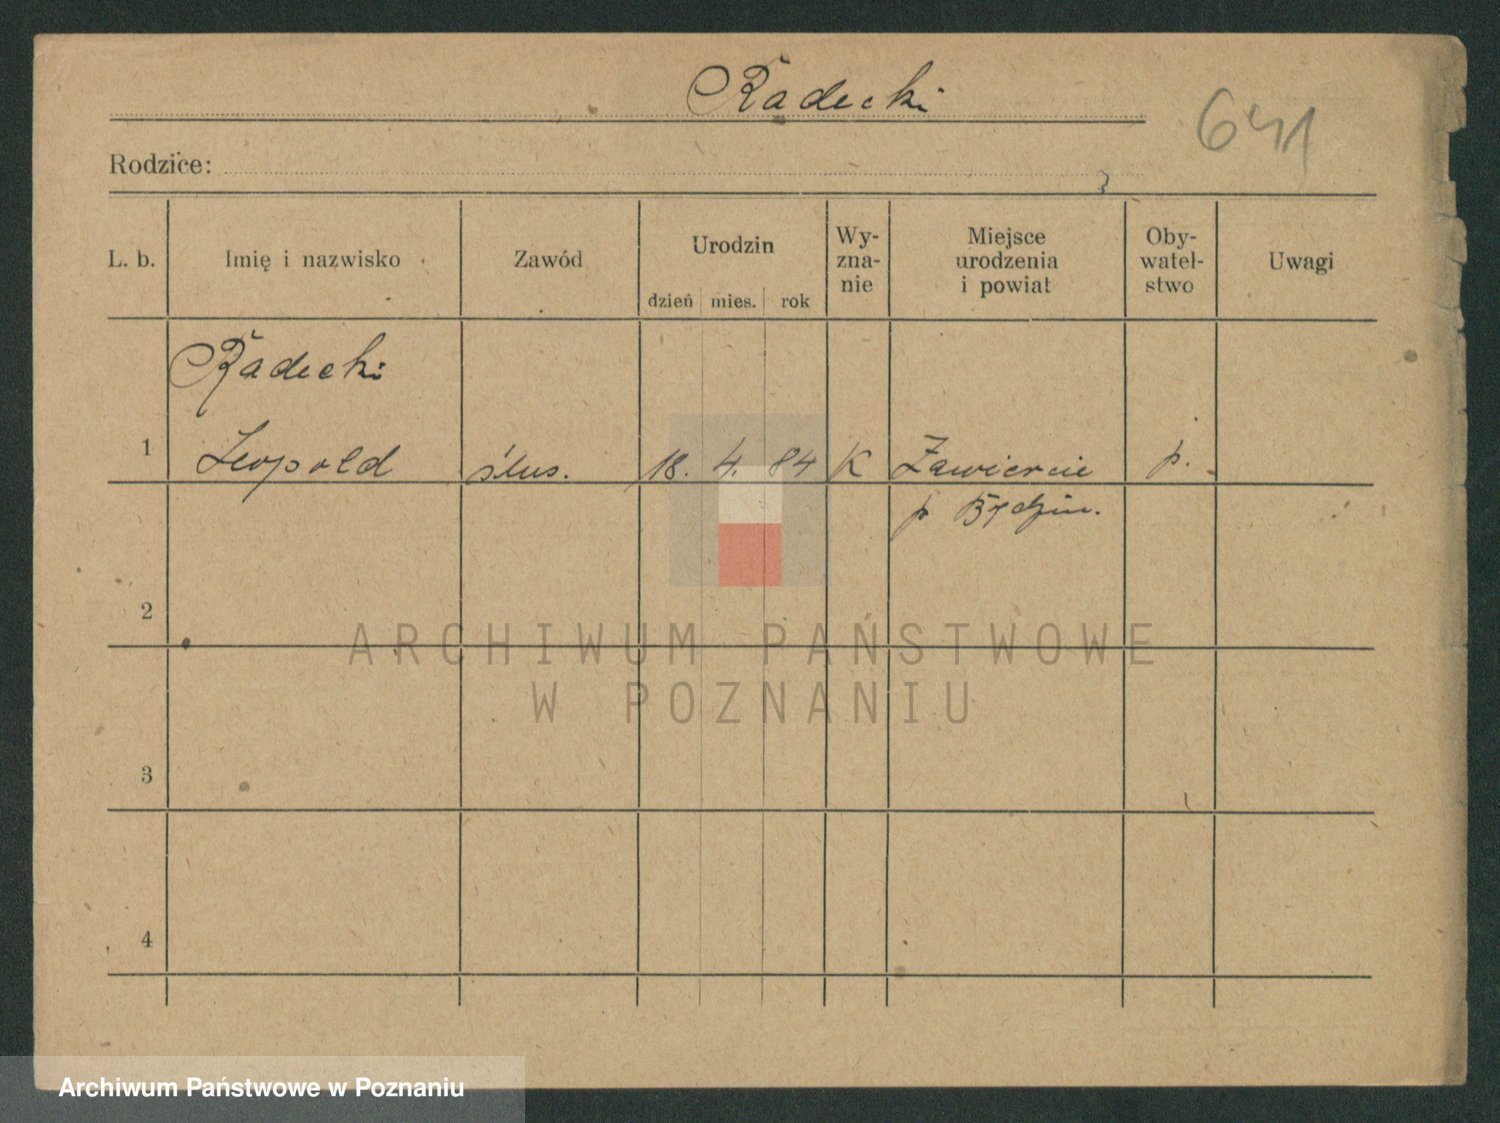 Radecki
641
Rodzice:
L. b.
Imię i nazwisko
Zawód
Urodzin
dzień mies. rok
Wy-
zna-
nie
Miejsce
urodzenia
i powiat
Oby-
watel-
stwo
Uwagi
Radecki
1 Leopold ślus. 18. 4. 84 K Zawiercie p.
p Będzin.
2
3
4
ARCHIWUM PAŃSTWOWE
W POZNANIU
Archiwum Państwowe w Poznaniu